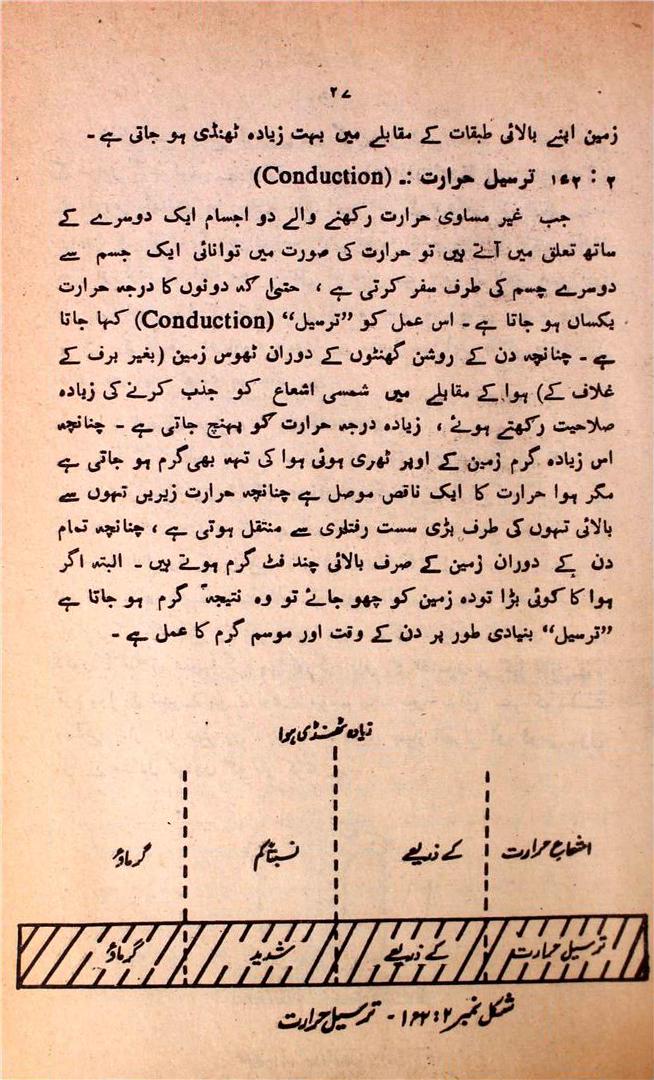 ۲۷
زمین اپنے بالائی طبقات کے مقابلے میں بہت زیادہ ٹھنڈی ہو جاتی ہے ۔
۲ : ۱ء۲ ترسیل حرارت :۔ (Conduction)
جب غیر مساوی حرارت رکھنے والے دو اجسام ایک دوسرے کے
ساتھ تعلق میں آتے ہیں تو حرارت کی صورت میں توانائی ایک جسم سے
دوسرے جسم کی طرف سفر کرتی ہے ، حتیٰ کہ دونوں کا درجہ حرارت
یکساں ہو جاتا ہے ۔ اس عمل کو ”ترسیل“ (Conduction) کہا جاتا
ہے ۔ چنانچہ دن کے روشن گھنٹوں کے دوران ٹھوس زمین (بغیر برف کے
غلاف کے) ہوا کے مقابلے میں شمسی اشعاع کو جذب کرنے کی زیادہ
صلاحیت رکھتے ہوئے ، زیادہ درجہ حرارت کو پہنچ جاتی ہے ۔ چنانچہ
اس زیادہ گرم زمین کے اوپر ٹھری ہوئی ہوا کی تہہ بھی گرم ہو جاتی ہے
مگر ہوا حرارت کا ایک ناقص موصل ہے چنانچہ حرارت زیریں تہوں سے
بالائی تہوں کی طرف بڑی سست رفتاری سے منتقل ہوتی ہے ، چنانچہ تمام
دن کے دوران زمین کے صرف بالائی چند فٹ گرم ہوتے ہیں ۔ البتہ اگر
ہوا کا کوئی بڑا تودہ زمین کو چھو جائے تو وہ نتیجہً گرم ہو جاتا ہے
”ترسیل“ بنیادی طور پر دن کے وقت اور موسم گرم کا عمل ہے ۔
زیادہ ٹھنڈی ہوا
اشعاع حرارت کے ذریعے نسبتاً کم گرماؤ
ترسیل حرارت کے ذریعے شدید گرماؤ
شکل نمبر ۲ : ۱ء۲ ۔ ترسیل حرارت